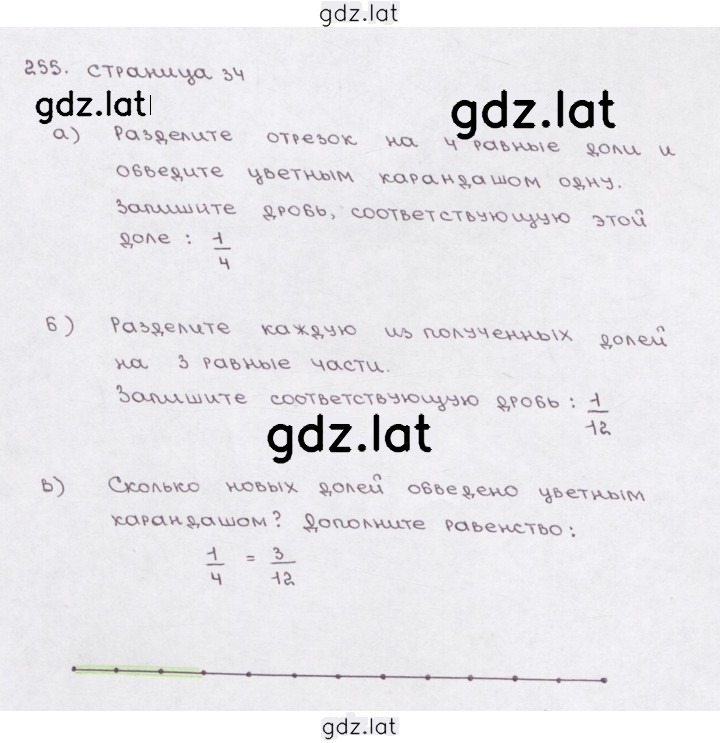 gdz.lat
255. страница 34
gdz.lat
gdz.lat
а) Разделите отрезок на 4 равные доли и
обведите цветным карандашом одну.
Запишите дробь, соответствующую этой
доле : 1/4
б) Разделите каждую из полученных долей
на 3 равные части.
Запишите соответствующую дробь : 1/12
gdz.lat
в) Сколько новых долей обведено цветным
карандашом? Дополните равенство:
1/4 = 3/12
gdz.lat